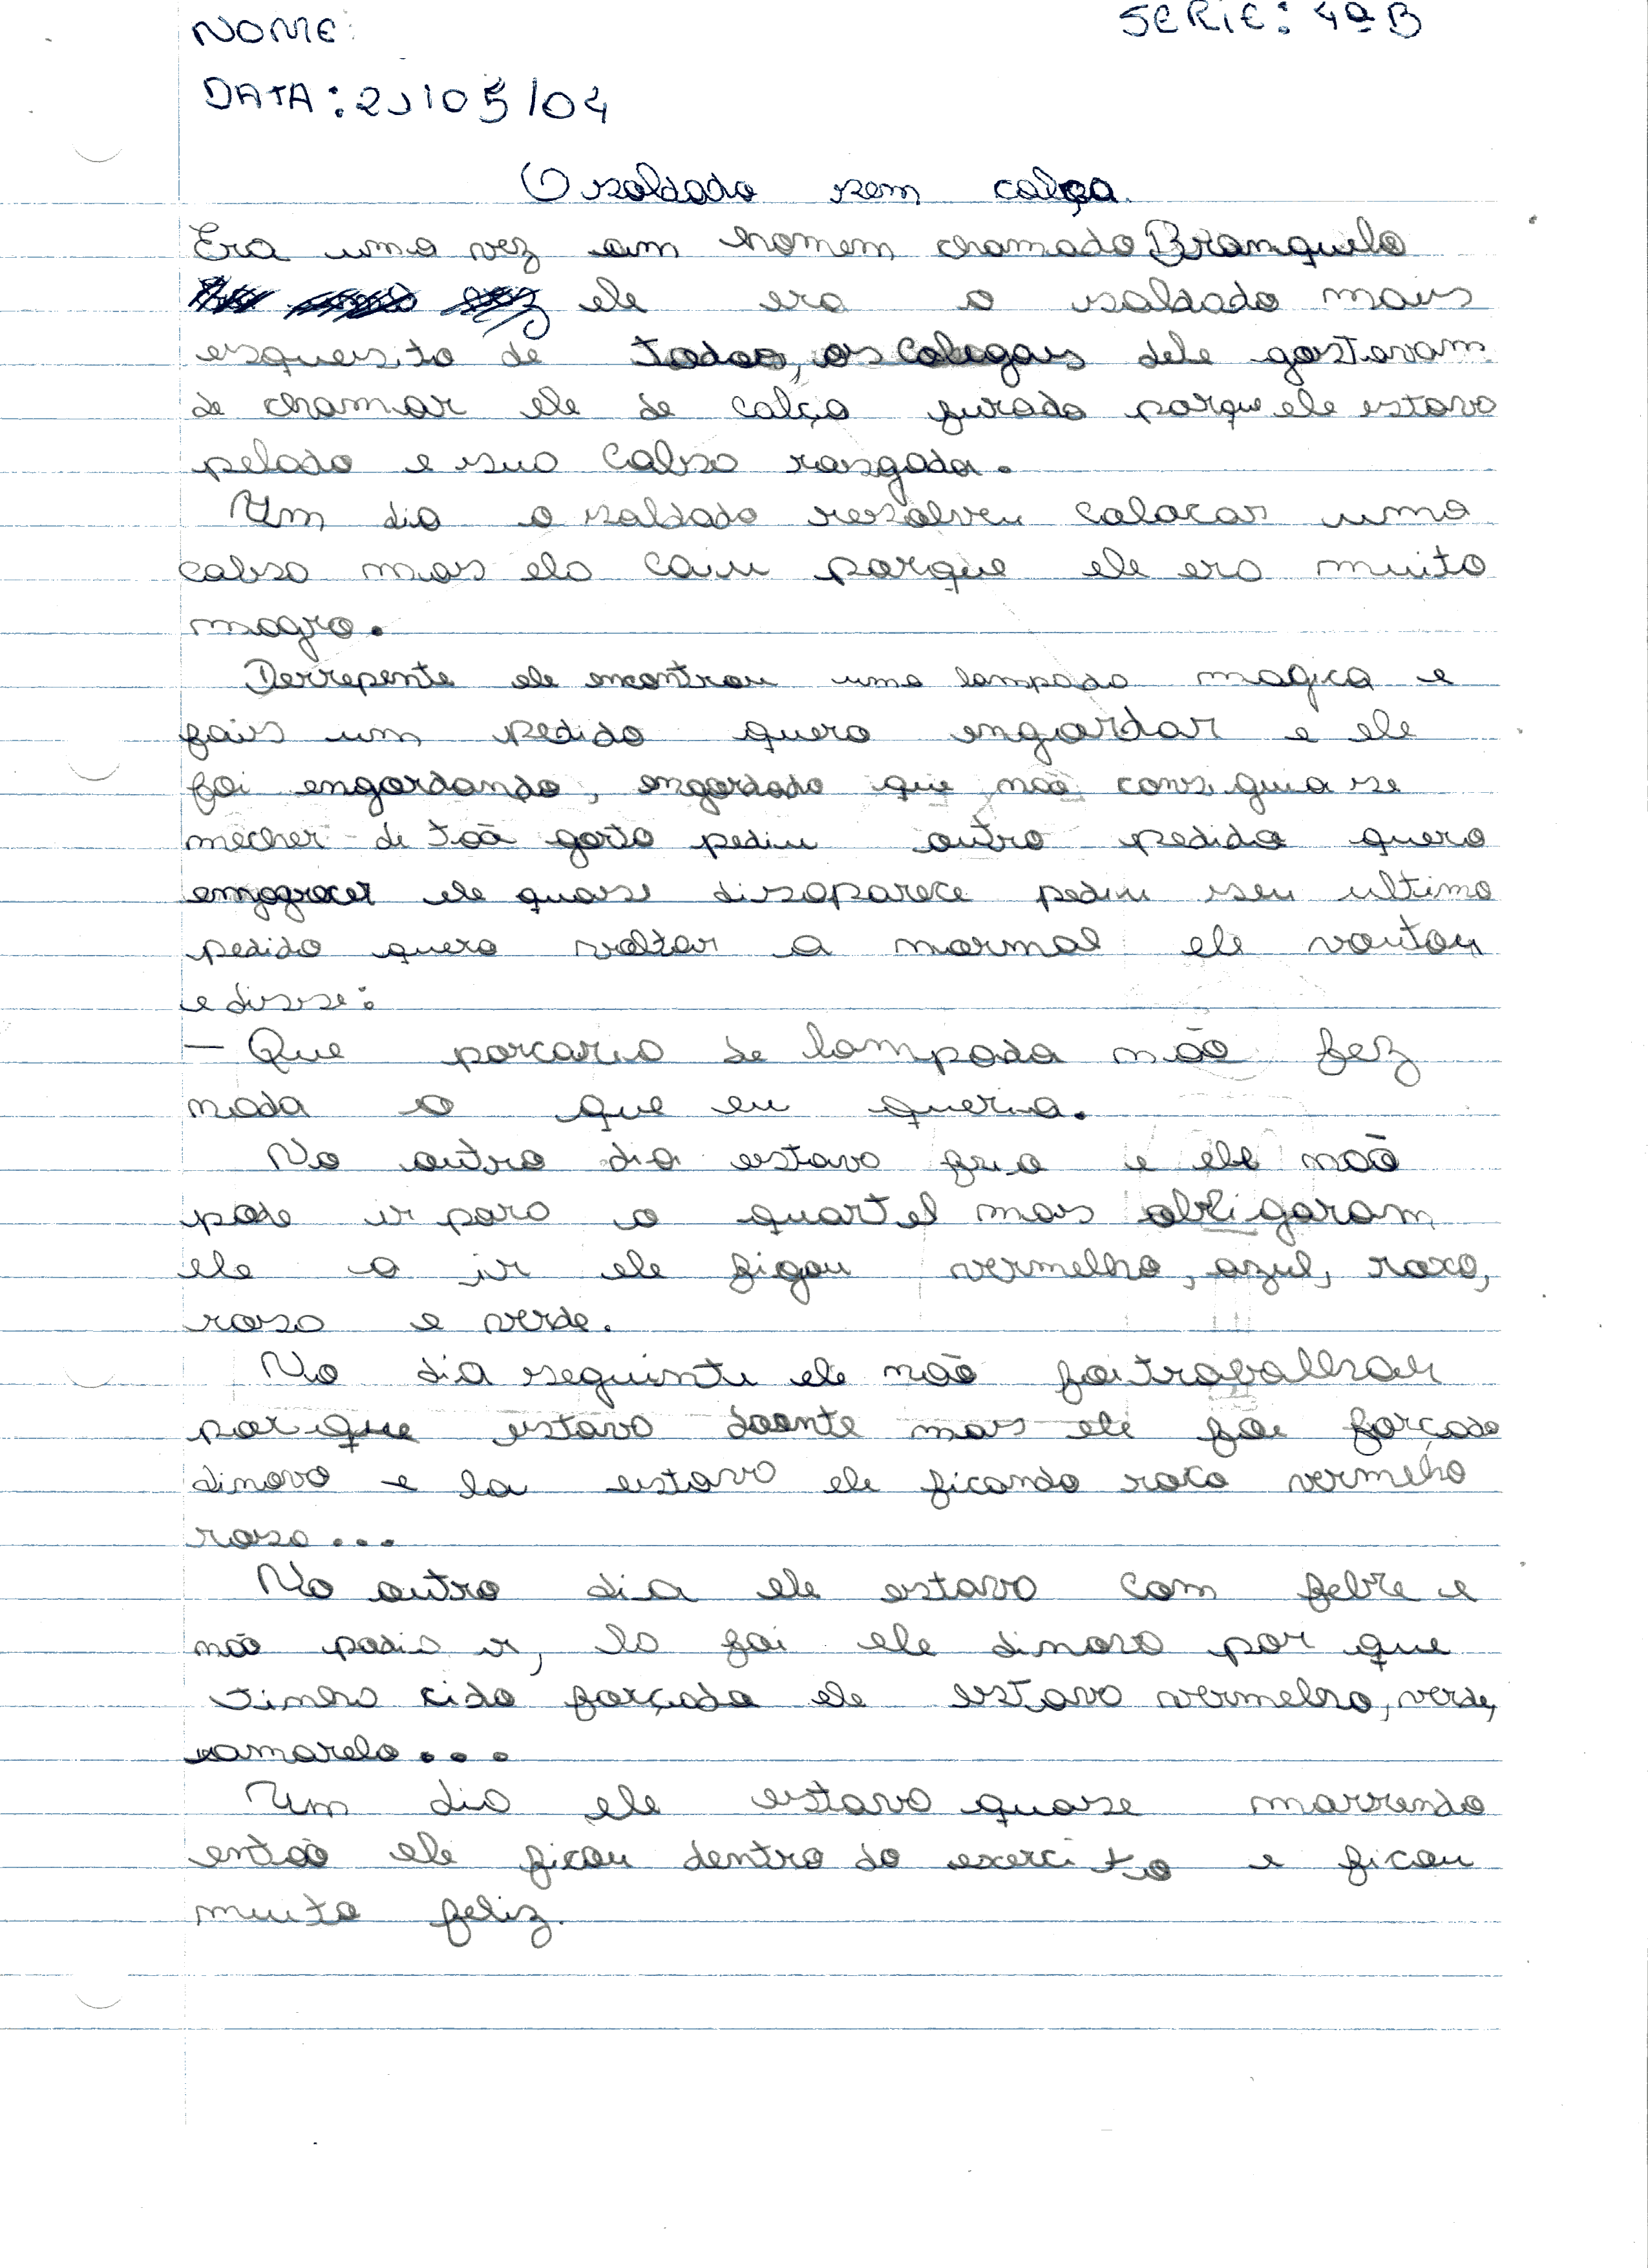 NOME:
SERIE: 4ª B
DATA: 21/05/04
O soldado sem calça.
Era uma vez um homem chamado Branquelo
ele era o soldado mais
esquesito de todos, os colegas dele gostavam
de chamar ele de calça furada porque ele estava
pelado e sua calsa rasgada.
Um dia o soldado resolveu colocar uma
calsa mais ela caiu porque ele era muito
magro.
Derrepente ele encontrou uma lampada magica e
fais um pedido quero engordar e ele
foi engordando, engordado que não consiguia se
mecher de tão gorto pediu outro pedido quero
emagracer ele quase disaparece pediu seu ultimo
pedido quero voltar a normal ele voutou
e disse:
— Que porcaria de lampada não fez
nada o que eu queria.
No outro dia estava frio e ele não
pode ir para o quartel mais obrigaram
ele a ir ele figou vermelho, azul, roxo,
rosa e verde.
No dia seguinte ele não foi trabalhar
porque estava doente mais ele foi forçado
dinovo e la estava ele ficando roxo vermelho
rosa...
No outro dia ele estava com febre e
não podia ir, la foi ele dinovo por que
tinha cido forçado ele estava vermelho, verde,
amarelo...
Um dia ele estava quase morrendo
então ele ficou dentro do exercito e ficou
muito feliz.